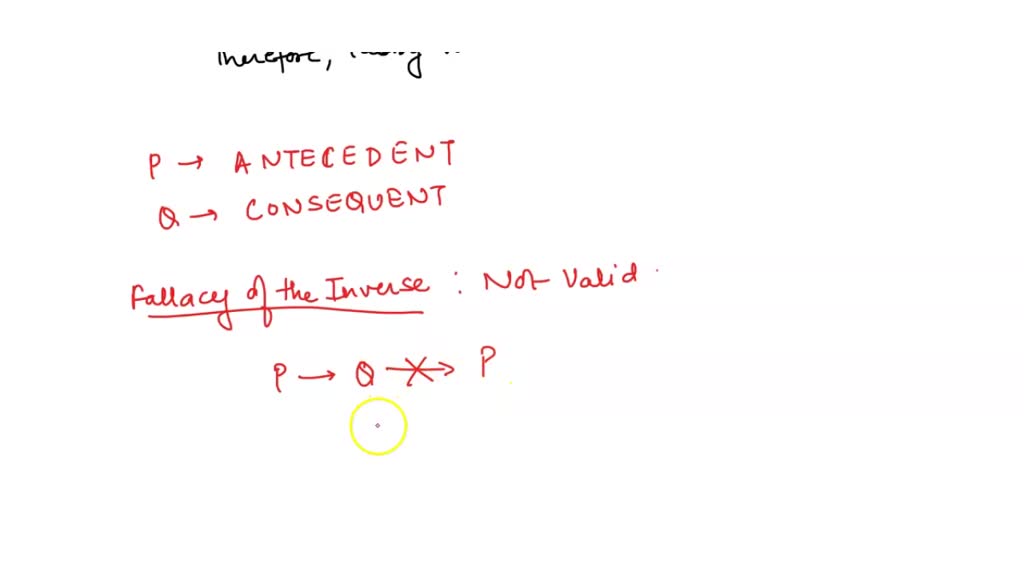 Therefore,
P → ANTECEDENT
Q → CONSEQUENT
Fallacy of the Inverse : Not Valid.
P → Q → P